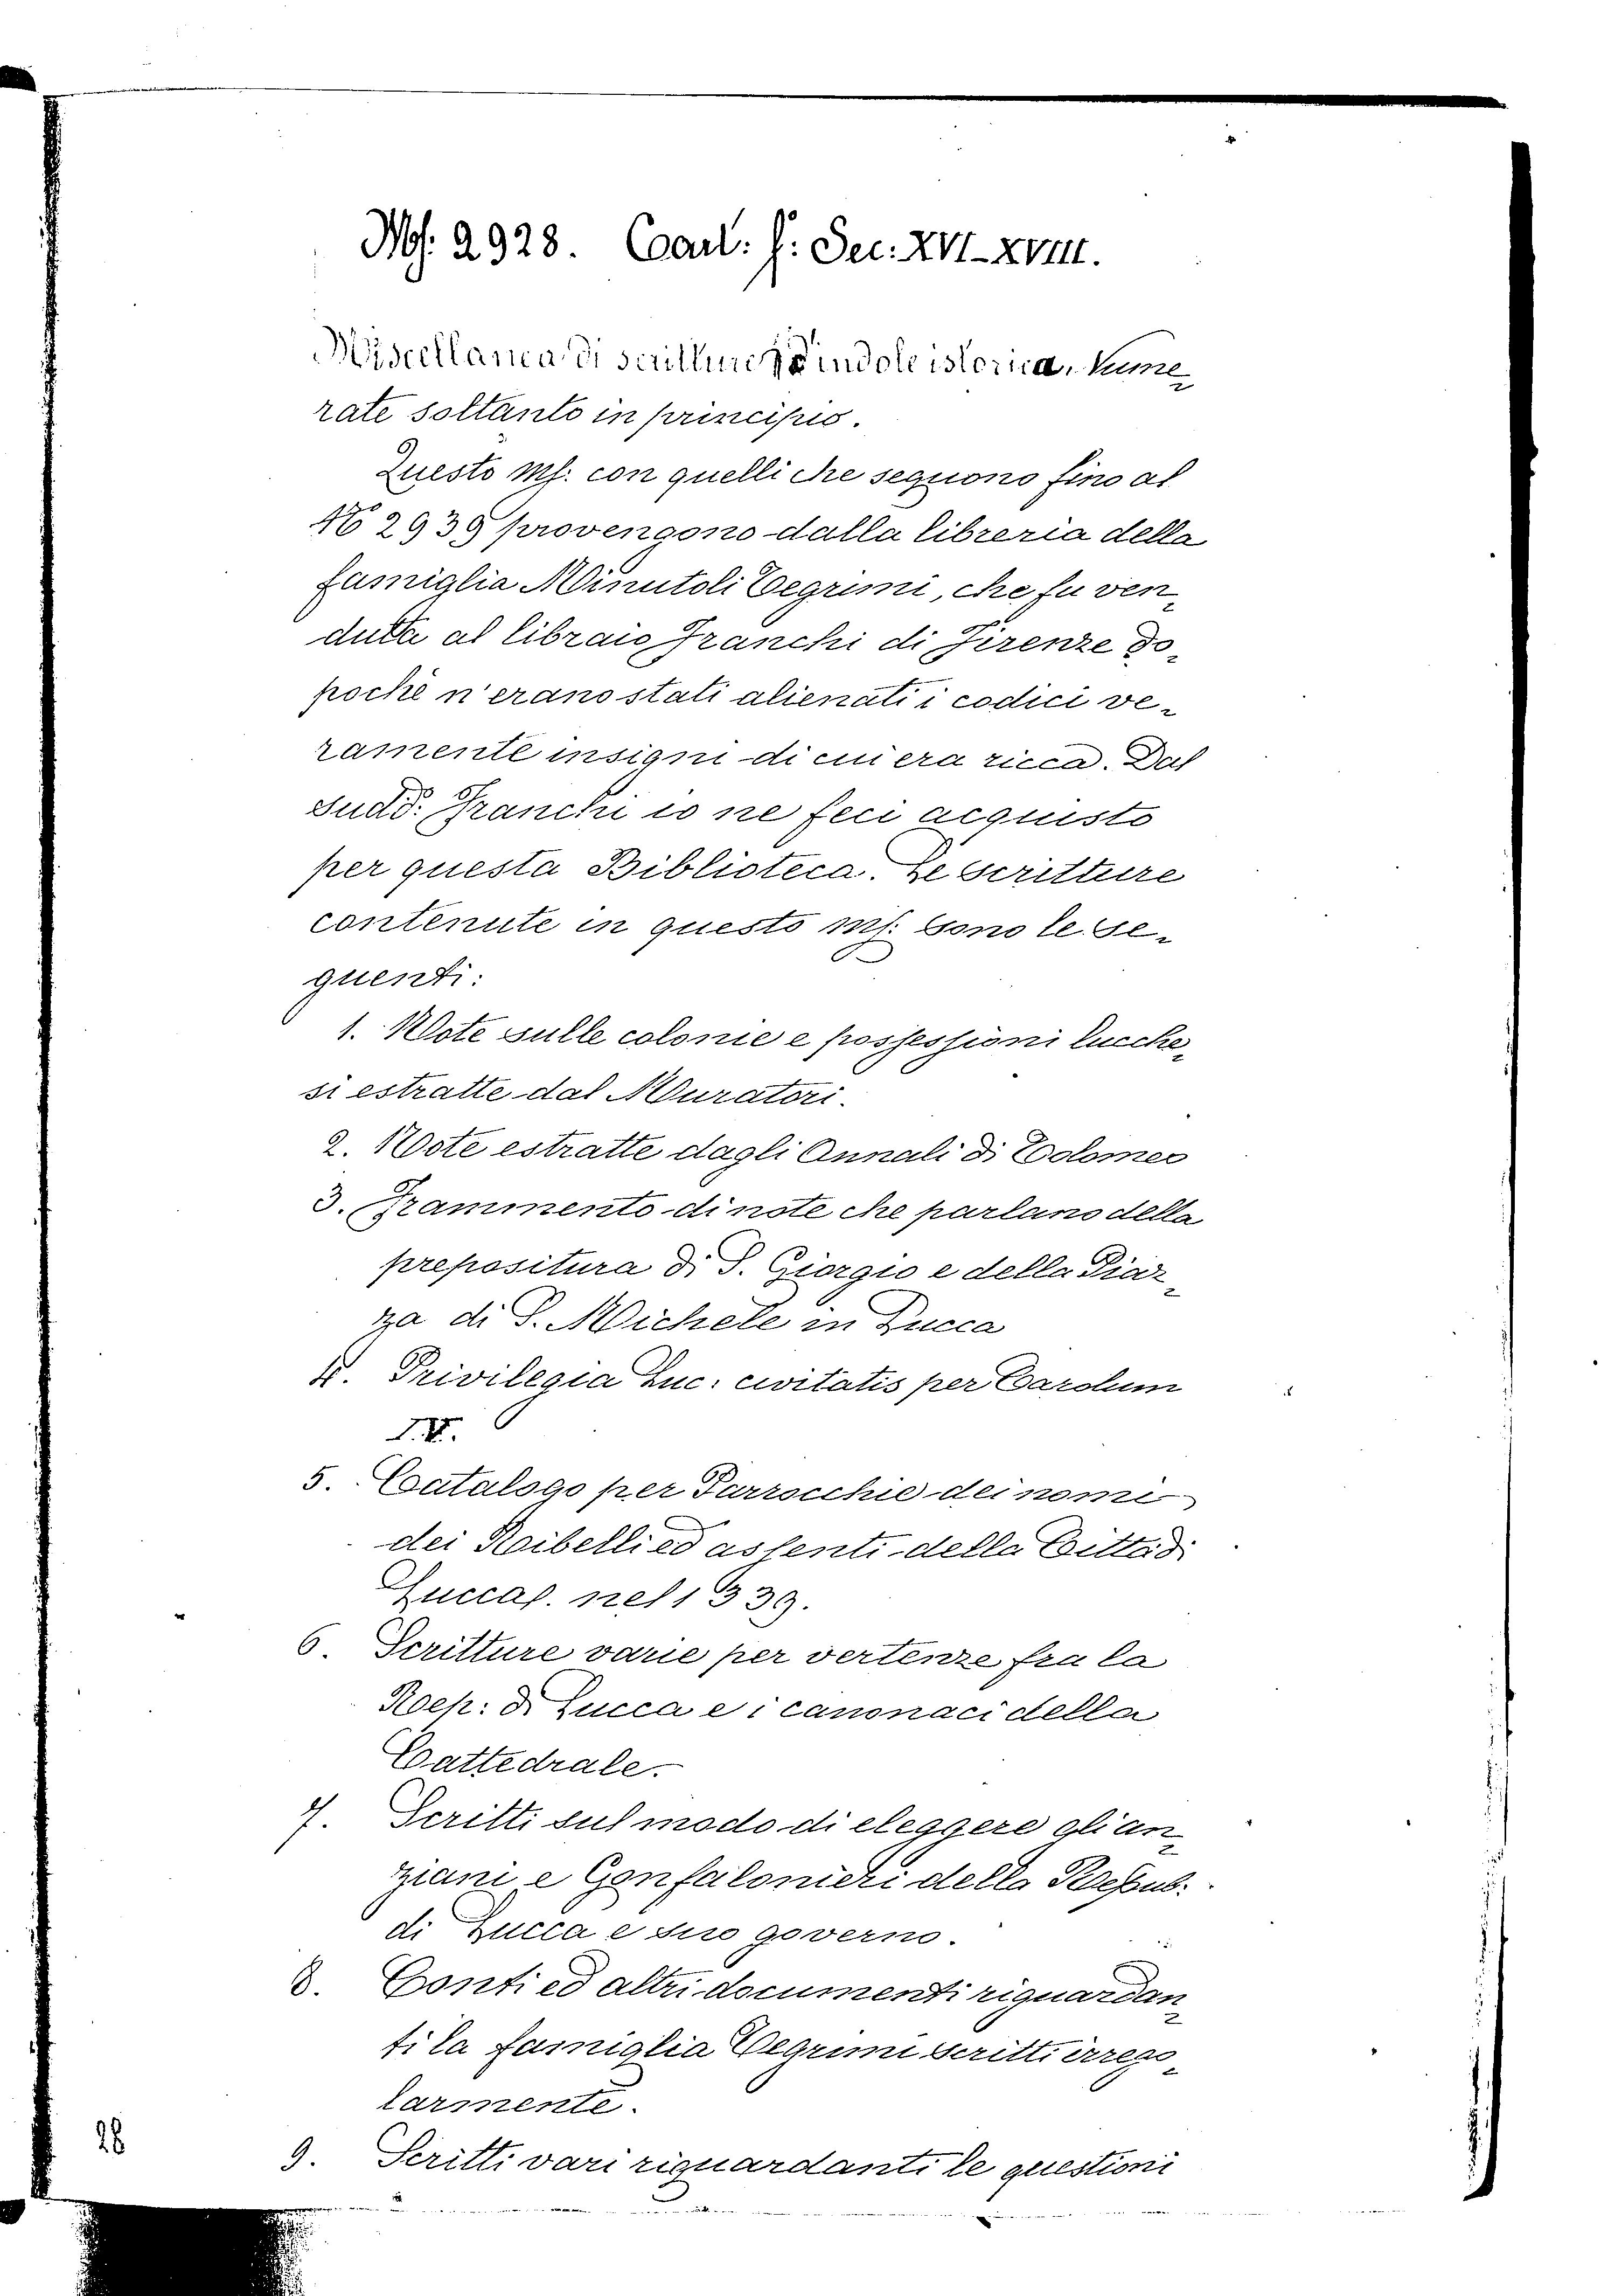 Ms. 2928. Cart: f: Sec. XVI-XVIII.
Miscellanea di scritture d'indole istorica, nume-
rate soltanto in principio.
Questo ms. con quelli che seguono fino al
N° 2939 provengono dalla libreria della
famiglia Minutoli Tegrimi, che fu ven-
duta al libraio Franchi di Firenze do-
poché n'erano stati alienati i codici ve-
ramente insigni di cui era ricca. Dal
sudd: Franchi io ne feci acquisto
per questa Biblioteca. Le scritture
contenute in questo ms: sono le se-
guenti:
1. Note sulle colonie e possessioni lucche-
si estratte dal Muratori.
2. Note estratte dagli Annali di Tolomeo
3. Frammento di note che parlano della
prepositura di S. Giorgio e della Piaz-
za di S. Michele in Lucca
4. Privilegia Luc: civitatis per Carolum
IV.
5. Catalogo per Parrocchie dei nomi
dei Ribelli ed assenti della Città di
Lucca nel 1339.
6. Scritture varie per vertenze fra la
Rep: di Lucca e i canonaci della
Cattedrale.
7. Scritti sul modo di eleggere gli an-
ziani e Gonfalonieri della Repub:
di Lucca e suo governo.
8. Conti ed altri documenti riguardan-
ti la famiglia Tegrimi scritti irrego-
larmente.
28
9. Scritti vari riguardanti le questioni